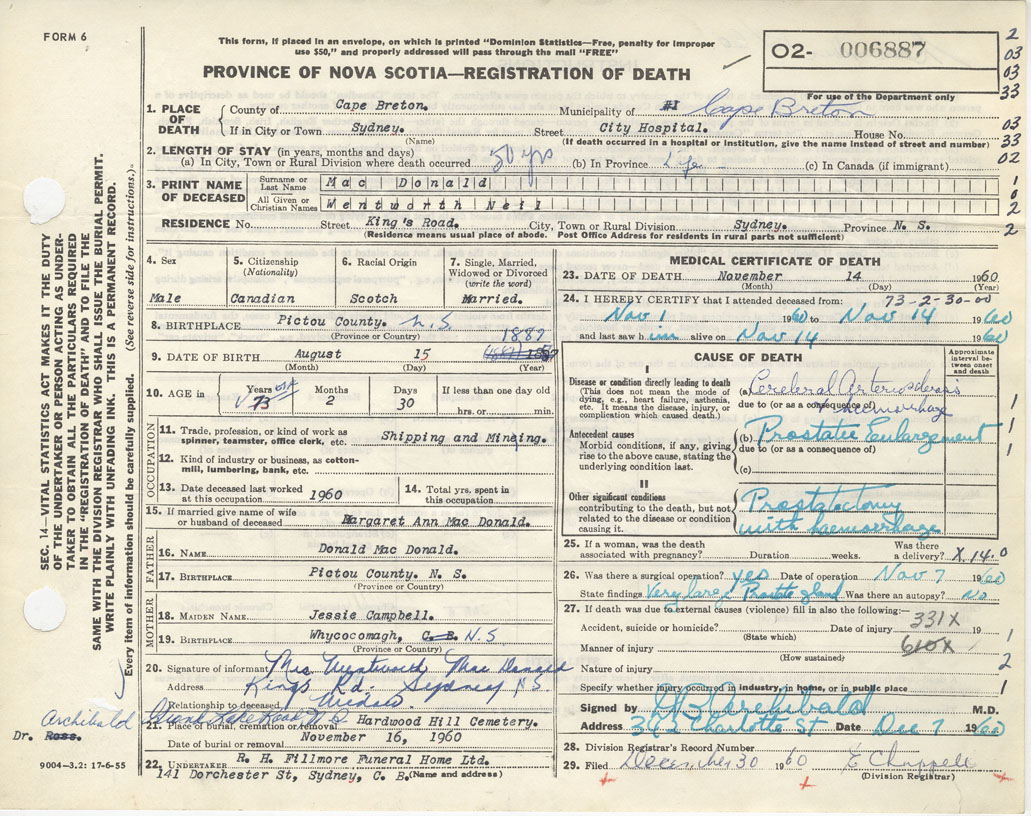 FORM 6
This form, if placed in an envelope, on which is printed "Dominion Statistics—Free, penalty for improper
use $50," and properly addressed will pass through the mail "FREE"
PROVINCE OF NOVA SCOTIA—REGISTRATION OF DEATH
02- 006887
For use of the Department only
2
03
03
33
03
33
02
1
0
2
2
1. PLACE OF DEATH
County of Cape Breton. Municipality of #1 Cape Breton
If in City or Town Sydney. Street City Hospital. House No.
(Name) (If death occurred in a hospital or institution, give the name instead of street and number)
2. LENGTH OF STAY (in years, months and days)
(a) In City, Town or Rural Division where death occurred 50 yrs (b) In Province Life (c) In Canada (if immigrant)
3. PRINT NAME OF DECEASED
Surname or Last Name Mac Donald
All Given or Christian Names Wentworth Neil
RESIDENCE No. Street King's Road. City, Town or Rural Division Sydney. Province N. S.
(Residence means usual place of abode. Post Office Address for residents in rural parts not sufficient)
4. Sex
Male
5. Citizenship
(Nationality)
Canadian
6. Racial Origin
Scotch
7. Single, Married, Widowed or Divorced
(write the word)
Married.
8. BIRTHPLACE Pictou County. N.S
(Province or Country)
1887
9. DATE OF BIRTH August 15
(Month) (Day) (Year)
10. AGE in Years 73 Months 2 Days 30 If less than one day old
hrs. or min.
OCCUPATION
11. Trade, profession, or kind of work as
spinner, teamster, office clerk, etc. Shipping and Mineing.
12. Kind of industry or business, as cotton-
mill, lumbering, bank, etc.
13. Date deceased last worked
at this occupation 1960
14. Total yrs. spent in
this occupation
15. If married give name of wife
or husband of deceased Margaret Ann Mac Donald.
FATHER
16. NAME Donald Mac Donald.
17. BIRTHPLACE Pictou County. N. S.
(Province or Country)
MOTHER
18. MAIDEN NAME Jessie Campbell.
19. BIRTHPLACE Whycocomagh, C. B. N.S
(Province or Country)
20. Signature of informant Mrs Wentworth Mac Donald
Address Kings Rd. Sydney N.S.
Relationship to deceased Widow.
21. Place of burial, cremation or removal Hardwood Hill Cemetery.
Date of burial or removal November 16, 1960
22. UNDERTAKER R. H. Fillmore Funeral Home Ltd.
141 Dorchester St, Sydney, C. B. (Name and address)
MEDICAL CERTIFICATE OF DEATH
23. DATE OF DEATH November 14 1960
(Month) (Day) (Year)
24. I HEREBY CERTIFY that I attended deceased from: 73-2-30-00
Nov 1 1960 to Nov 14 1960
and last saw h im alive on Nov 14 1960
CAUSE OF DEATH
Approximate interval between onset and death
I
Disease or condition directly leading to death
(This does not mean the mode of
dying, e.g., heart failure, asthenia,
etc. It means the disease, injury, or
complication which caused death.)
(a) Cerebral Arteriosclerosis
due to (or as a consequence of)
& haemorrhage
1
Antecedent causes
Morbid conditions, if any, giving
rise to the above cause, stating the
underlying condition last.
(b) Prostatic Enlargement
due to (or as a consequence of)
(c)
1
1
II
Other significant conditions
contributing to the death, but not
related to the disease or condition
causing it.
Prostatectomy
with haemorrhage
25. If a woman, was the death
associated with pregnancy? Duration weeks. Was there
a delivery? X.14.0
26. Was there a surgical operation? yes Date of operation Nov 7 1960
State findings Very large Prostate gland Was there an autopsy? No
27. If death was due to external causes (violence) fill in also the following:—
Accident, suicide or homicide? Date of injury 19
(State which)
331X
1
Manner of injury 610X
(How sustained)
2
Nature of injury
Specify whether injury occurred in industry, in home, or in public place
1
Signed by Archibald M.D.
Address 393 Charlotte St Date Dec 7 1960
28. Division Registrar's Record Number
29. Filed December 30 1960 E Chappell
(Division Registrar)
SEC. 14—VITAL STATISTICS ACT MAKES IT THE DUTY
OF THE UNDERTAKER OR PERSON ACTING AS UNDER-
TAKER TO OBTAIN ALL THE PARTICULARS REQUIRED
IN THE "REGISTRATION OF DEATH" AND TO FILE THE
SAME WITH THE DIVISION REGISTRAR WHO SHALL ISSUE THE BURIAL PERMIT.
WRITE PLAINLY WITH UNFADING INK. THIS IS A PERMANENT RECORD.
Every item of information should be carefully supplied. (See reverse side for instructions.)
Archibald
Dr. Ross.
9004—3.2: 17-6-55